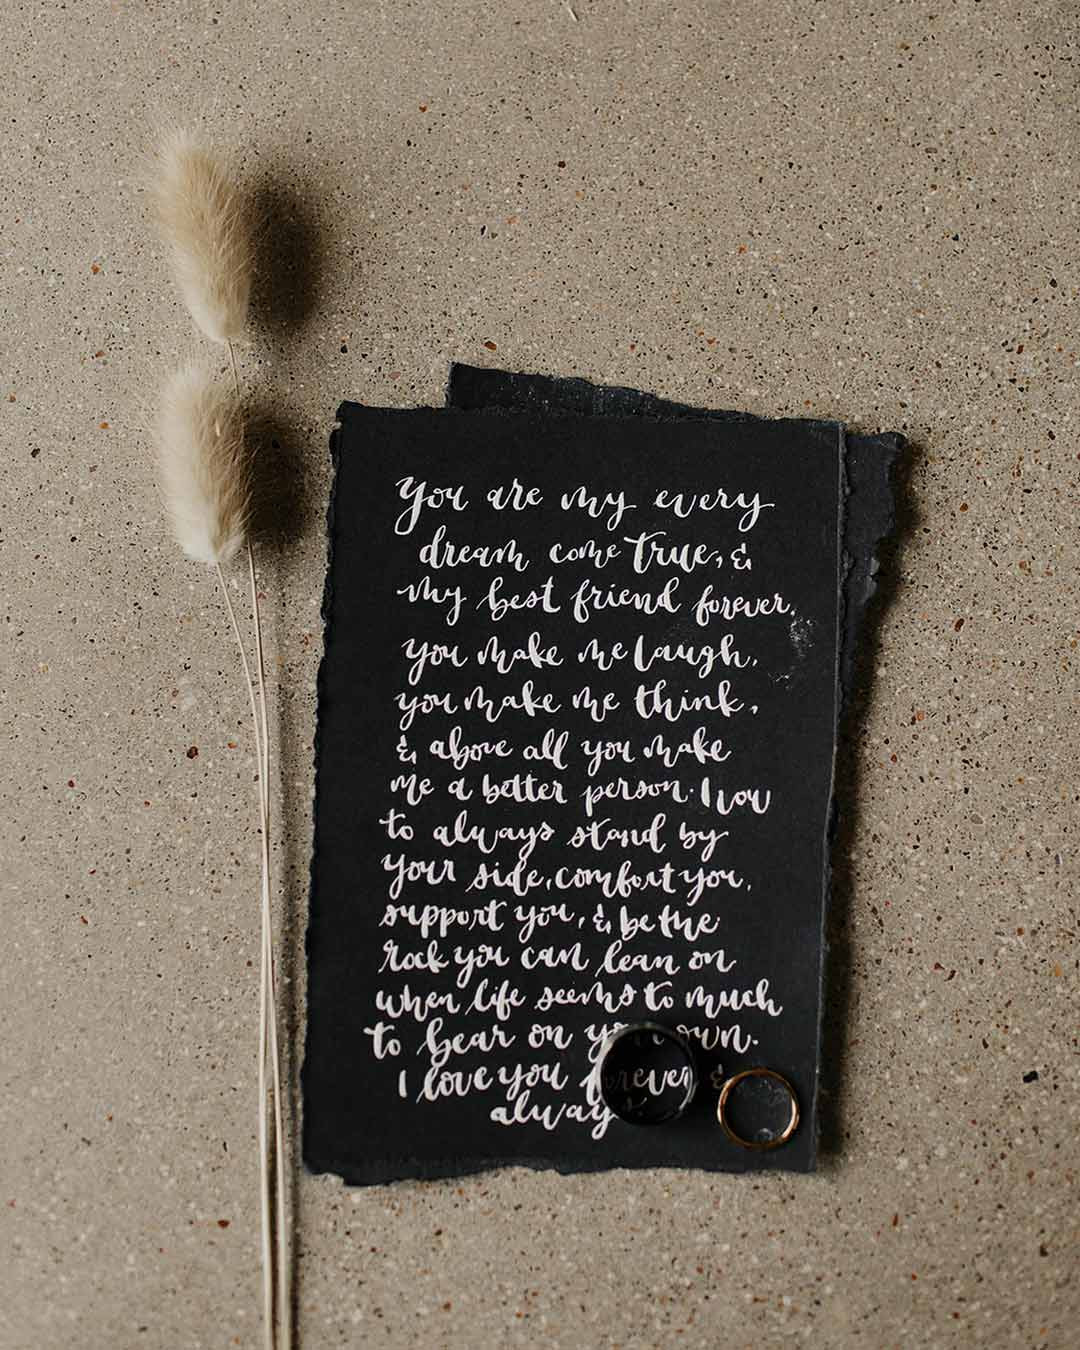 You are my every
dream come true, &
my best friend forever.
you make me laugh,
you make me think,
& above all you make
me a better person. I vow
to always stand by
your side, comfort you,
support you, & be the
rock you can lean on
when life seems to much
to bear on your own.
I love you forever &
always.